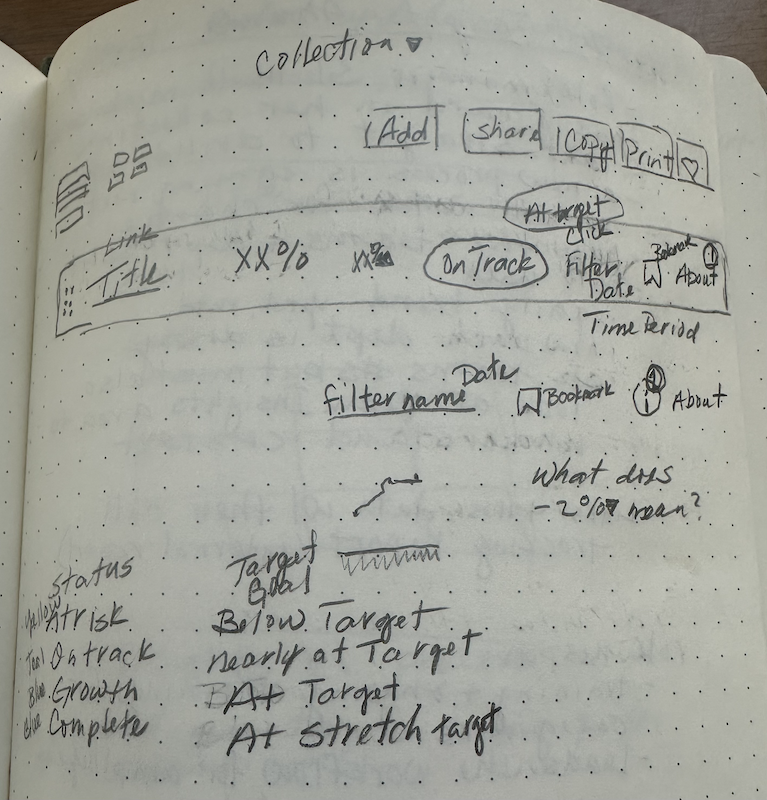 Collection ▼
Add Share Copy Print ♡
At target
Link Click
Title XX% XX% On Track Filter Date Bookmark i About
Time Period
filter name Date Bookmark i About
What does
-2%▼ mean?
Status Target Goal
Yellow At risk Below Target
Teal On track nearly at Target
Blue Growth At Target
Blue Complete At Stretch target